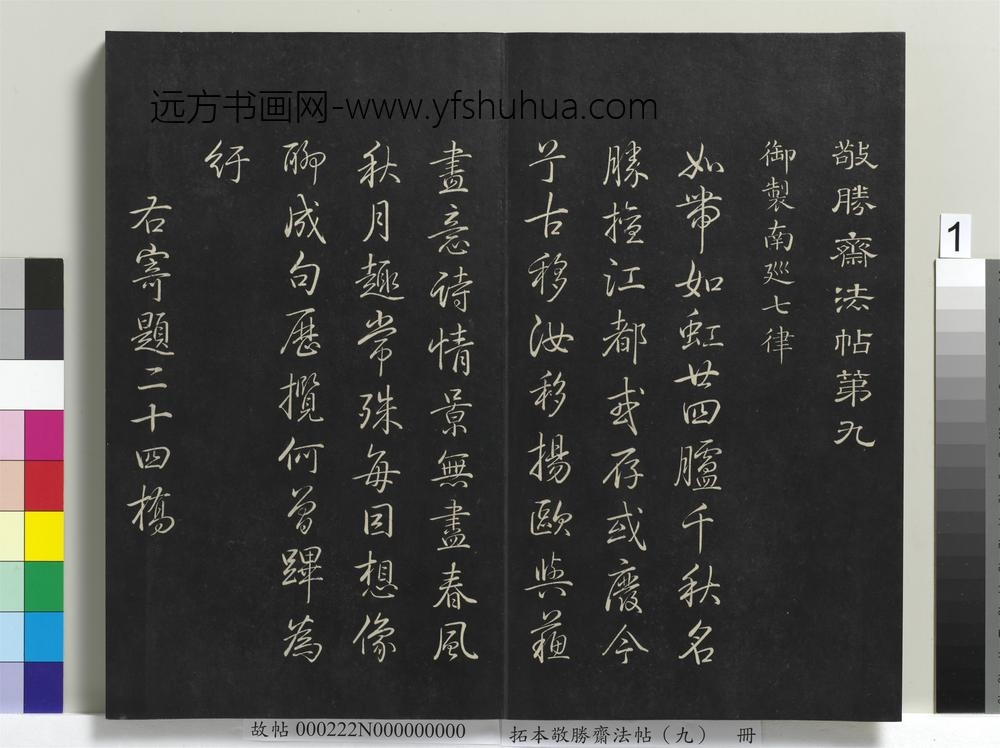 远方书画网-www.yfshuhua.com
敬勝齋法帖第九
御製南廵七律
如帶如虹廿四臚千秋名
勝擅江都或存或廢今
兮古移汝移揚歐與蘓
盡意詩情景無盡春風
秋月趣常殊每因想像
聊成句歷攬何曾蹕為
紆
右寄題二十四橋
1
故帖 000222N000000000
拓本敬勝齋法帖（九） 冊